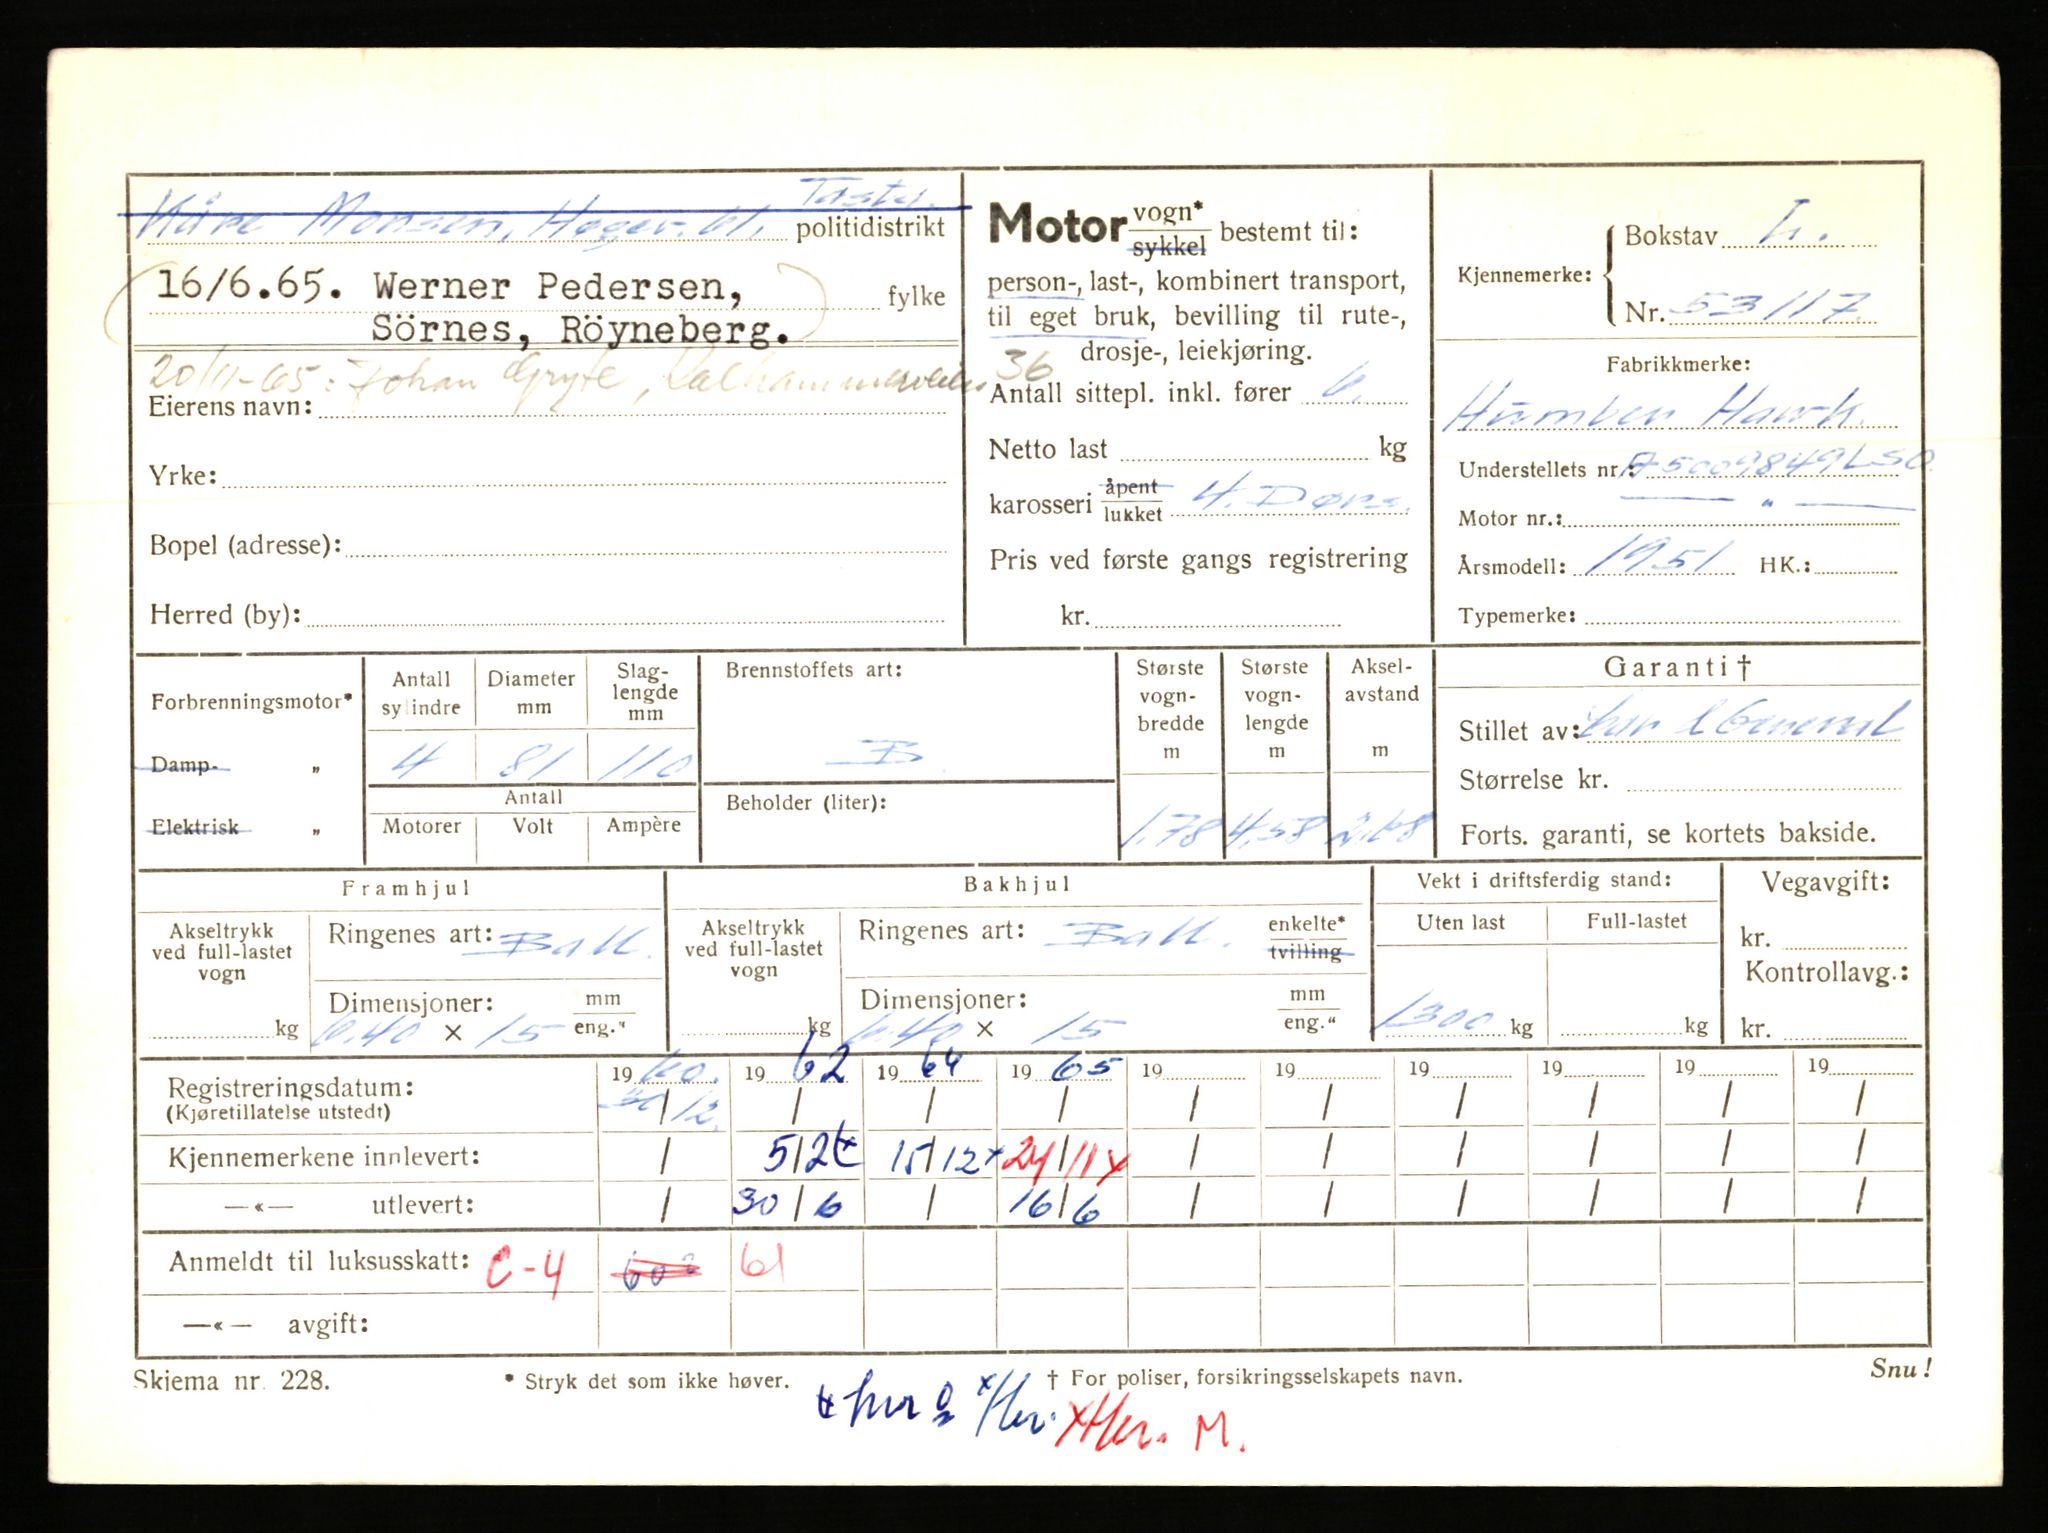 Kåre Monsen, Hager. 61. Tasta.
politidistrikt
16/6.65. Werner Pedersen,
fylke
Sörnes, Röyneberg.
20/11-65: Johan Gryte, 36
Eierens navn:
Yrke:
Bopel (adresse):
Herred (by):
Motor vogn* sykkel bestemt til:
person-, last-, kombinert transport,
til eget bruk, bevilling til rute-,
drosje-, leiekjøring.
Antall sittepl. inkl. fører 6.
Netto last kg
karosseri åpent lukket 4. Dørs.
Pris ved første gangs registrering
kr.
Kjennemerke: Bokstav L.
Nr. 53117.
Fabrikkmerke:
Humber Hawk.
Understellets nr.: A5009849LSO
Motor nr.: — " —
Årsmodell: 1951 HK.:
Typemerke:
Forbrenningsmotor*
Damp- „
Elektrisk „
Antall sylindre
4
Diameter mm
81
Slag-lengde mm
110
Antall
Motorer Volt Ampère
Brennstoffets art:
B
Beholder (liter):
Største vogn-bredde m
1.78
Største vogn-lengde m
4.58
Aksel-avstand m
2.68
Garanti †
Stillet av: General
Størrelse kr.
Forts. garanti, se kortets bakside.
Framhjul
Akseltrykk ved full-lastet vogn
kg
Ringenes art: Ball.
Dimensjoner: mm eng."
6.40 × 15
Bakhjul
Akseltrykk ved full-lastet vogn
kg
Ringenes art: Ball. enkelte* tvilling
Dimensjoner: mm eng."
6.40 × 15
Vekt i driftsferdig stand:
Uten last Full-lastet
1300 kg kg
Vegavgift:
kr.
Kontrollavg.:
kr.
Registreringsdatum: 1960. 1962 1964 1965 19 19 19 19 19 19
(Kjøretillatelse utstedt) 30/12. / / / / / / / / /
Kjennemerkene innlevert: / 5/2 15/12x 24/11x / / / / / /
—«— utlevert: / 30/6 / 16/6 / / / / / /
Anmeldt til luksusskatt: C-4 60 61
—«— avgift:
Skjema nr. 228.
* Stryk det som ikke høver.
† For poliser, forsikringsselskapets navn.
Snu!
xHer. xHer. M.